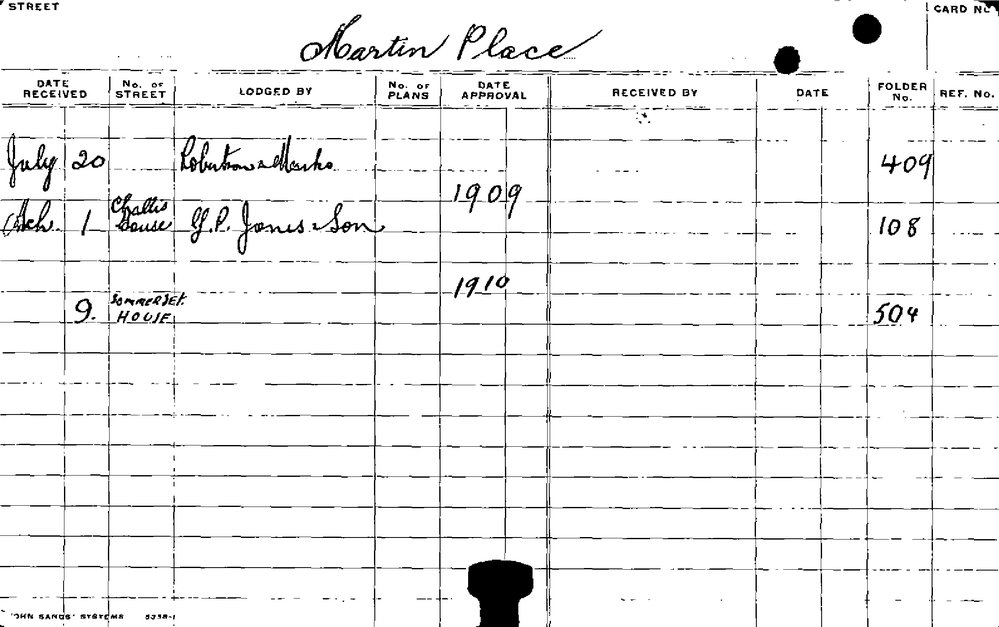 STREET
CARD No
Martin Place
DATE RECEIVED No. OF STREET LODGED BY No. OF PLANS DATE APPROVAL RECEIVED BY DATE FOLDER No. REF. No.
July 20 Robertson & Marks 409
1909
1 Challis House G.P. Jones & Son 108
1910
9. SOMMERSET HOUSE 504
'JOHN SANDS' SYSTEMS 5358-1